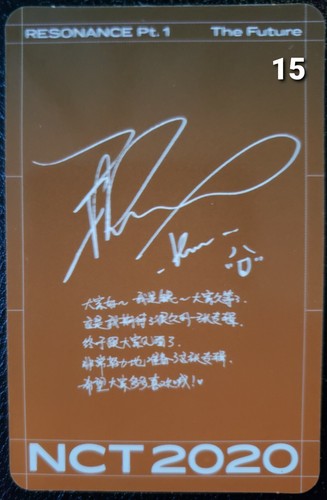 RESONANCE Pt. 1 The Future
15
-Kun-
大家好~ 我是锟~ 大家久等了.
这是我期待了很久的一张专辑.
终于跟大家见面了.
非常努力地准备了这张专辑.
希望大家多多喜欢哦!♥
NCT 2020